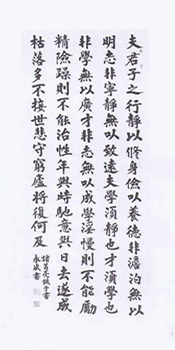 夫君子之行靜以脩身儉以養德非澹泊無以
明志非寧靜無以致遠夫學須靜也才須學也
非學無以廣才非志無以成學淫慢則不能勵
精險躁則不能治性年與時馳意與日去遂成
枯落多不接世悲守窮廬將復何及
諸葛亮誡子書
永斌書